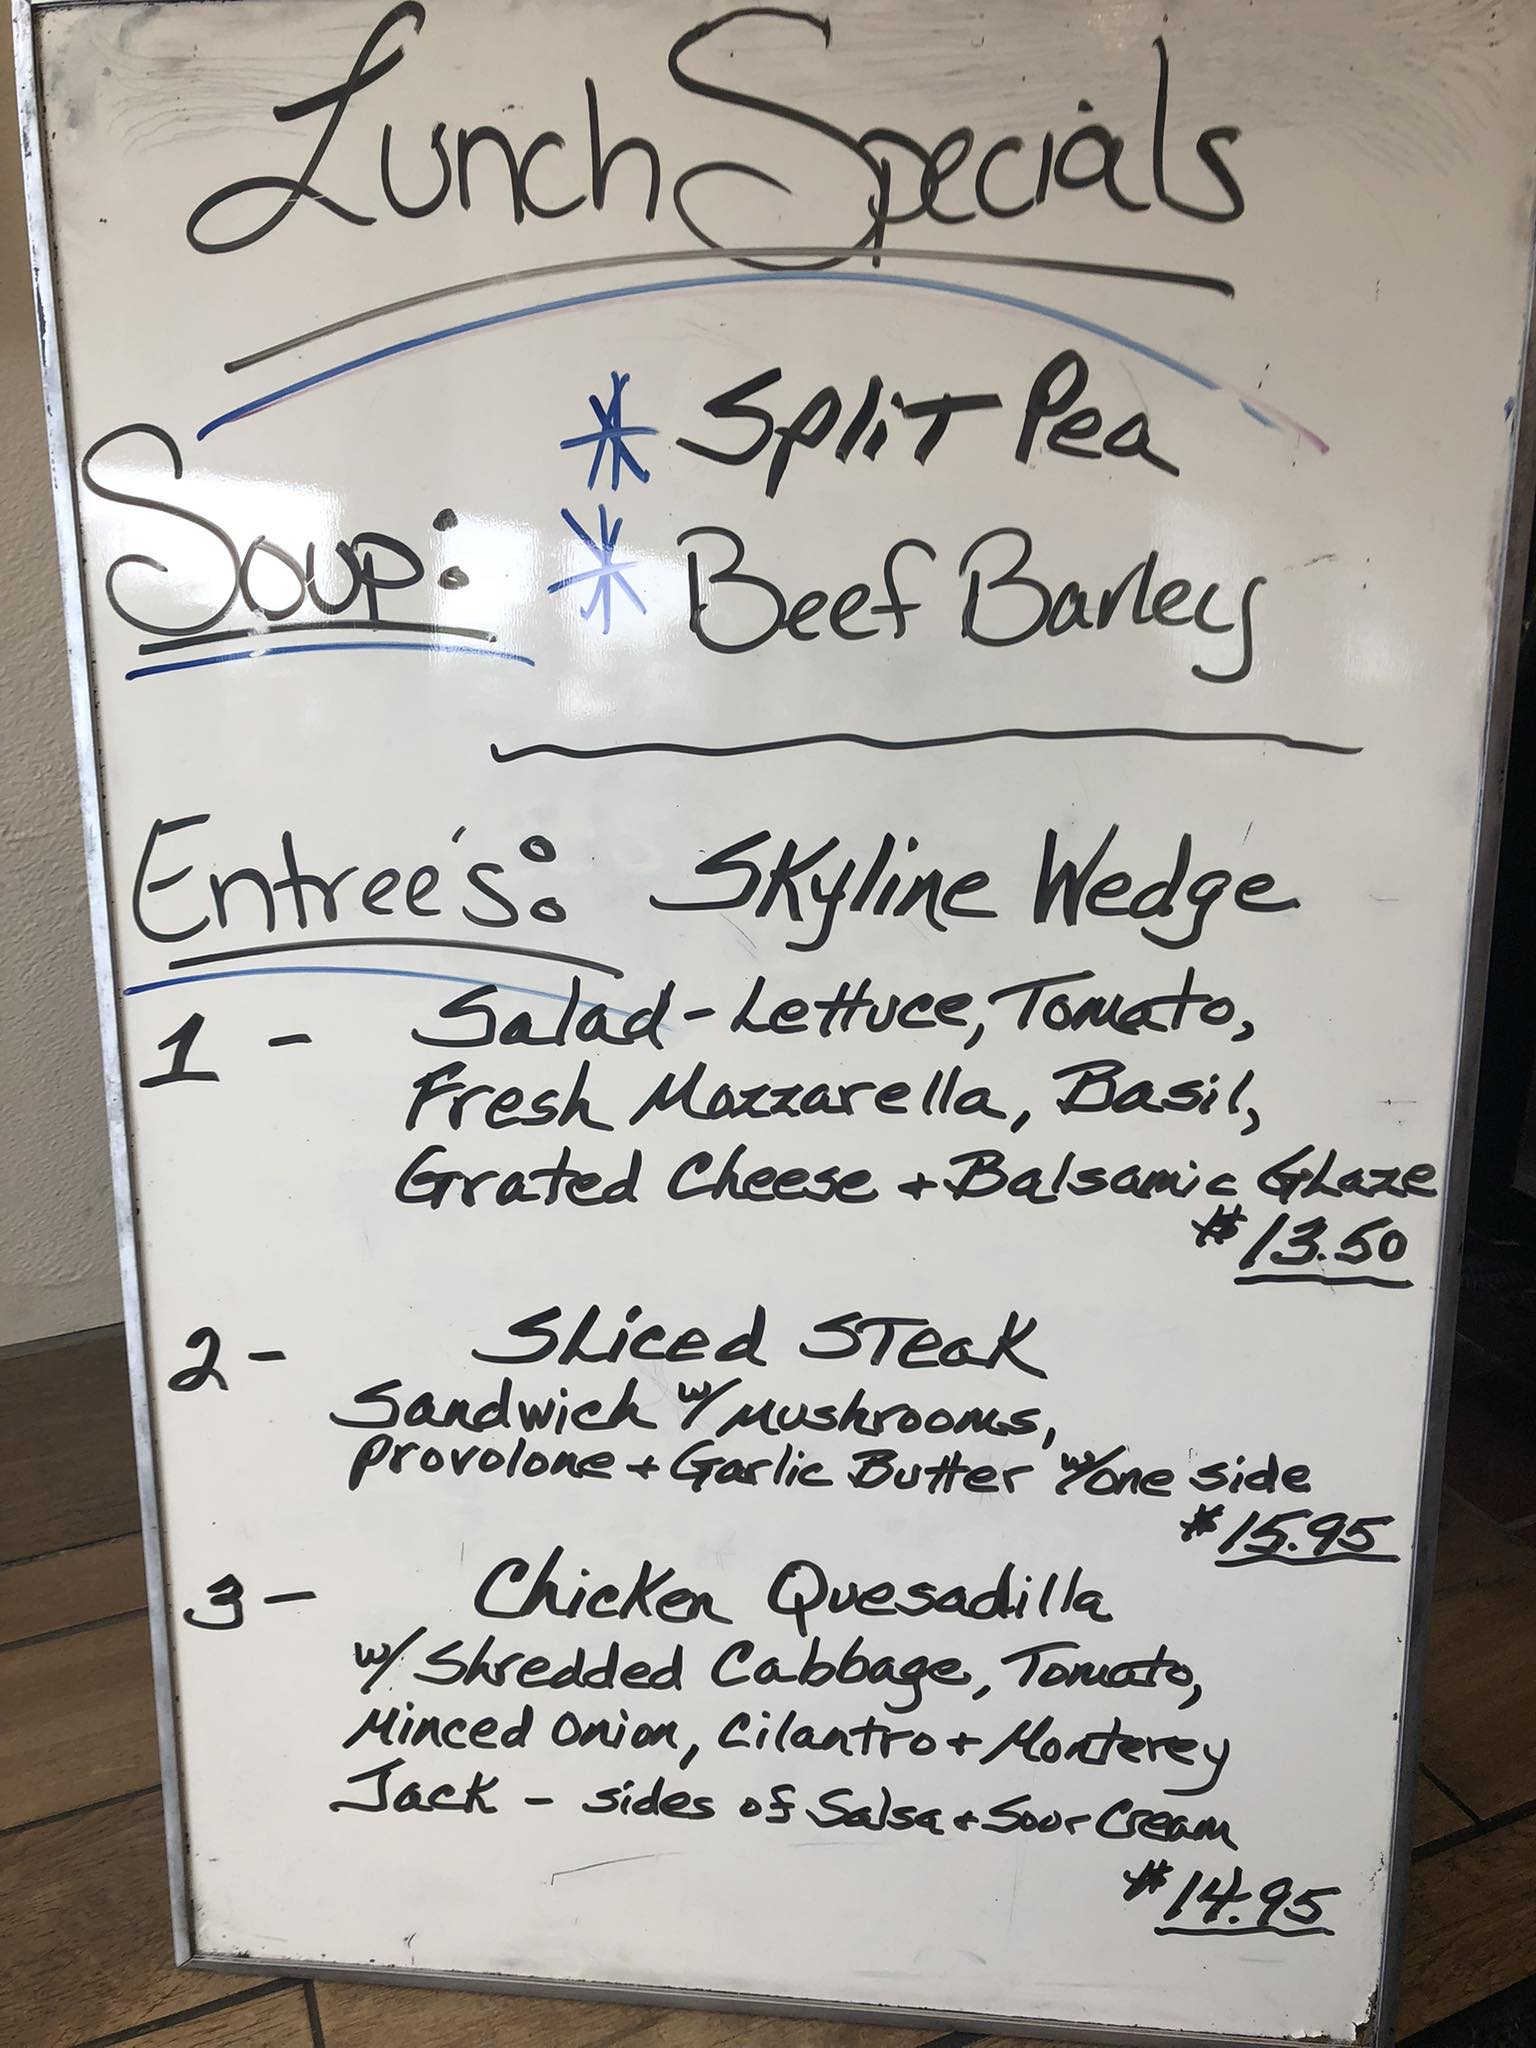 Lunch Specials
Soup: * Split Pea
* Beef Barley
Entree's: Skyline Wedge
1 - Salad - Lettuce, Tomato,
Fresh Mozzarella, Basil,
Grated Cheese + Balsamic Glaze
$13.50
2 - Sliced Steak
Sandwich w/ Mushrooms,
Provolone + Garlic Butter w/one side
$15.95
3 - Chicken Quesadilla
w/ Shredded Cabbage, Tomato,
Minced Onion, Cilantro + Monterey
Jack - sides of Salsa + Sour Cream
$14.95